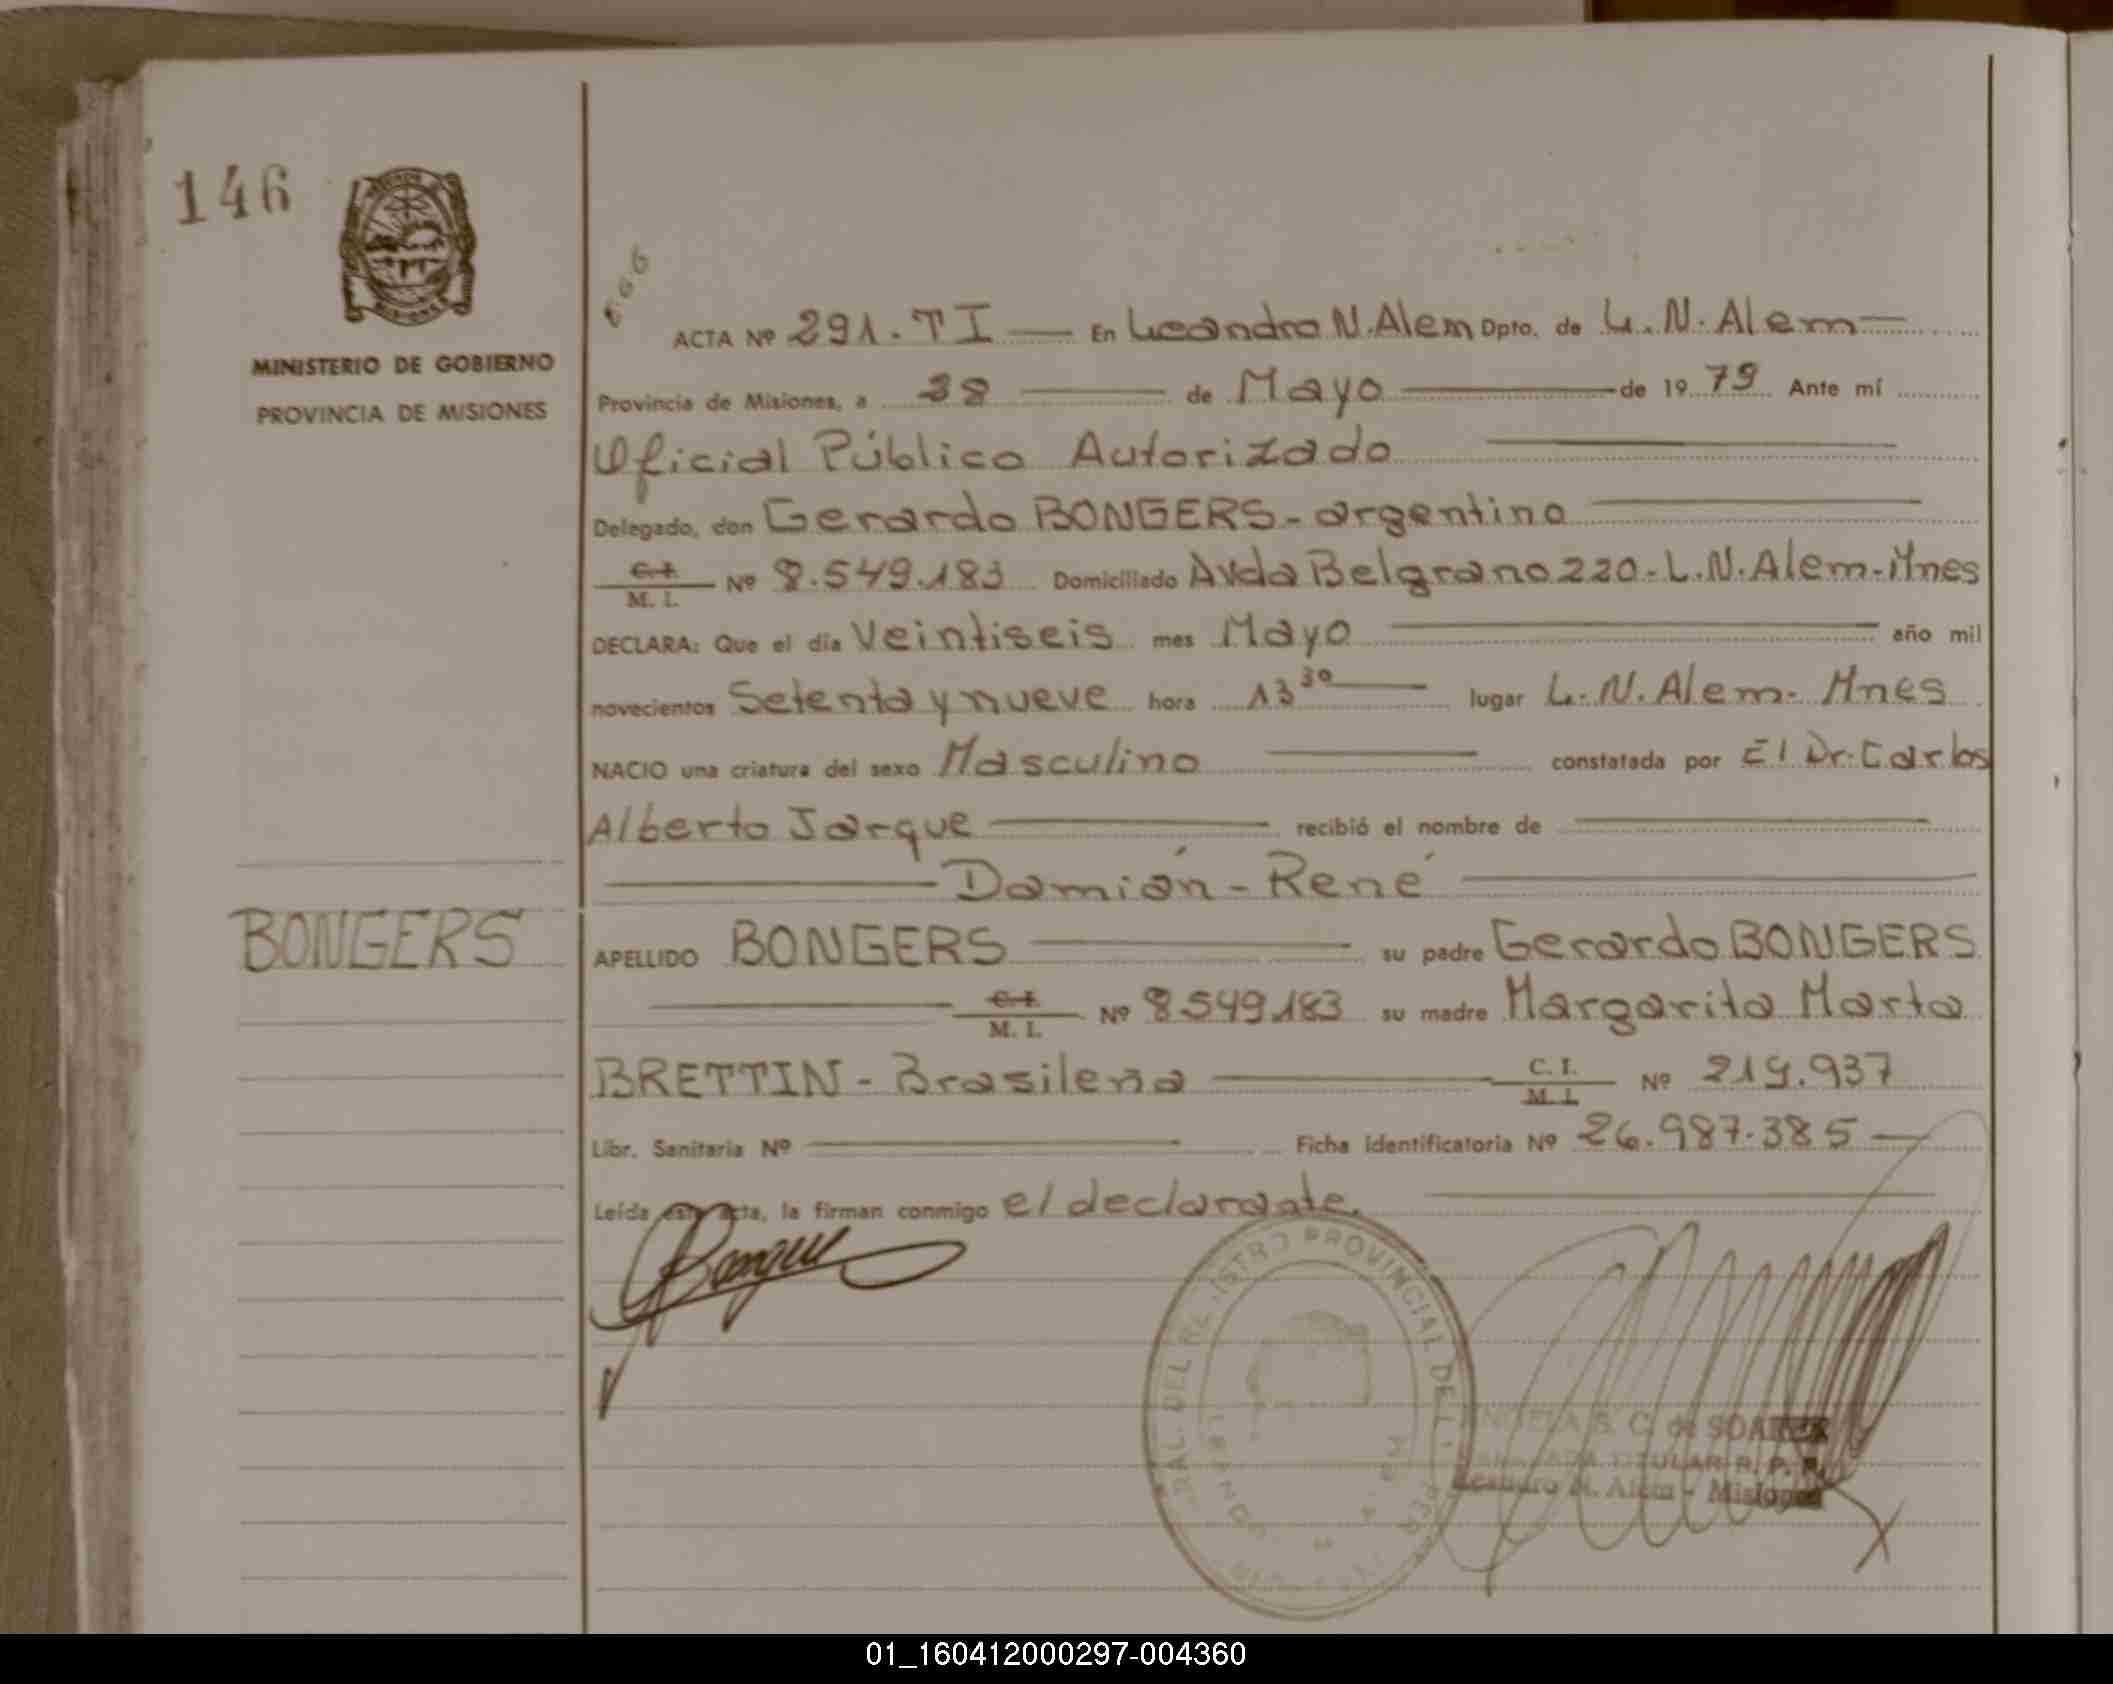 146
MINISTERIO DE GOBIERNO
PROVINCIA DE MISIONES
ACTA Nº 291.TI En Leandro N. Alem Dpto. de L.N. Alem
Provincia de Misiones, a 28 de Mayo de 1979 Ante mí
Oficial Público Autorizado
Delegado, don Gerardo BONGERS - argentino
C.I.
M. I. Nº 8.549.183 Domiciliado Avda Belgrano 220 - L.N. Alem - Mnes
DECLARA: Que el día Veintiseis mes Mayo año mil
novecientos Setenta y nueve hora 13 30 lugar L.N. Alem - Mnes
NACIO una criatura del sexo Masculino constatada por El Dr. Carlos
Alberto Jarque recibió el nombre de
Damián - René
BONGERS
APELLIDO BONGERS su padre Gerardo BONGERS
C.I.
M. I. Nº 8.549.183 su madre Margarita Marta
BRETTIN - Brasileña C. I.
M. I. Nº 219.937
Libr. Sanitaria Nº Ficha identificatoria Nº 26.987.385
Leída esta acta, la firman conmigo el declarante.
PROVINCIAL DE
DEL
S. C. de SOAREZ
TITULAR R. P. P.
Leandro N. Alem - Misiones
01_160412000297-004360